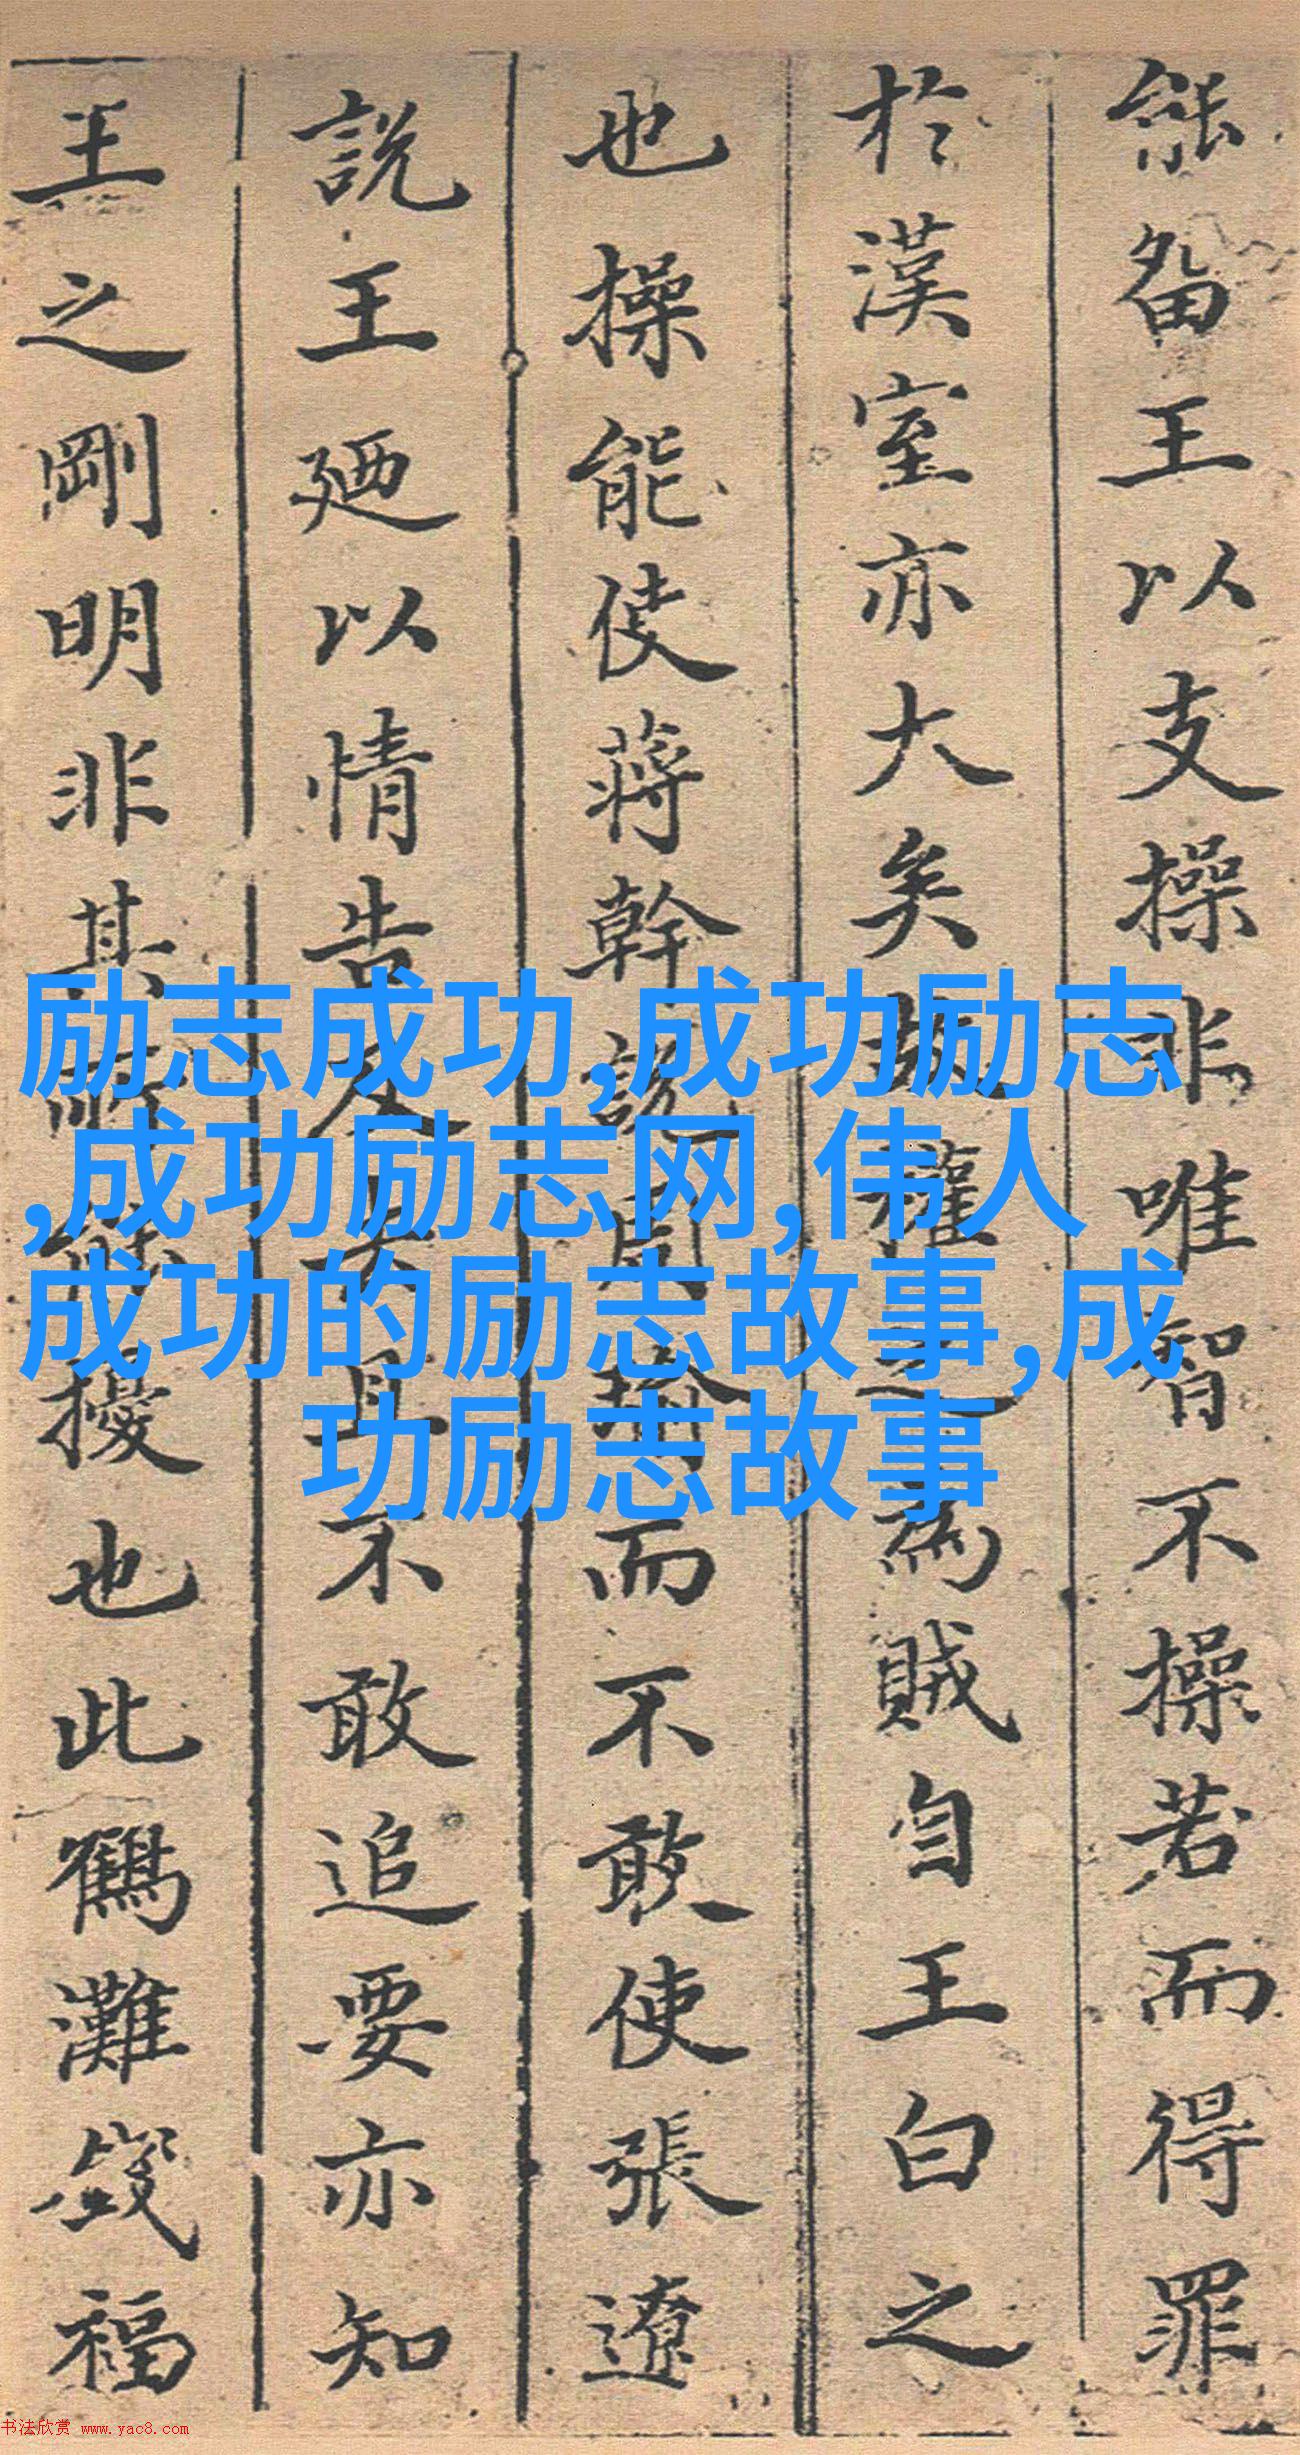 能留王以支操非唯智不操若而得罪
於漢室亦大矣故權之為賊自王白之
也操能使蔣幹說周瑜而不敢使張遼
說王廼以情告且不敢追要亦知
王之剛明非其所能擾也此鶴灘錢福
励志成功,成功励志
,成功励志网,伟人
成功的励志故事,成
功励志故事
书法欣赏 www.yac8.com